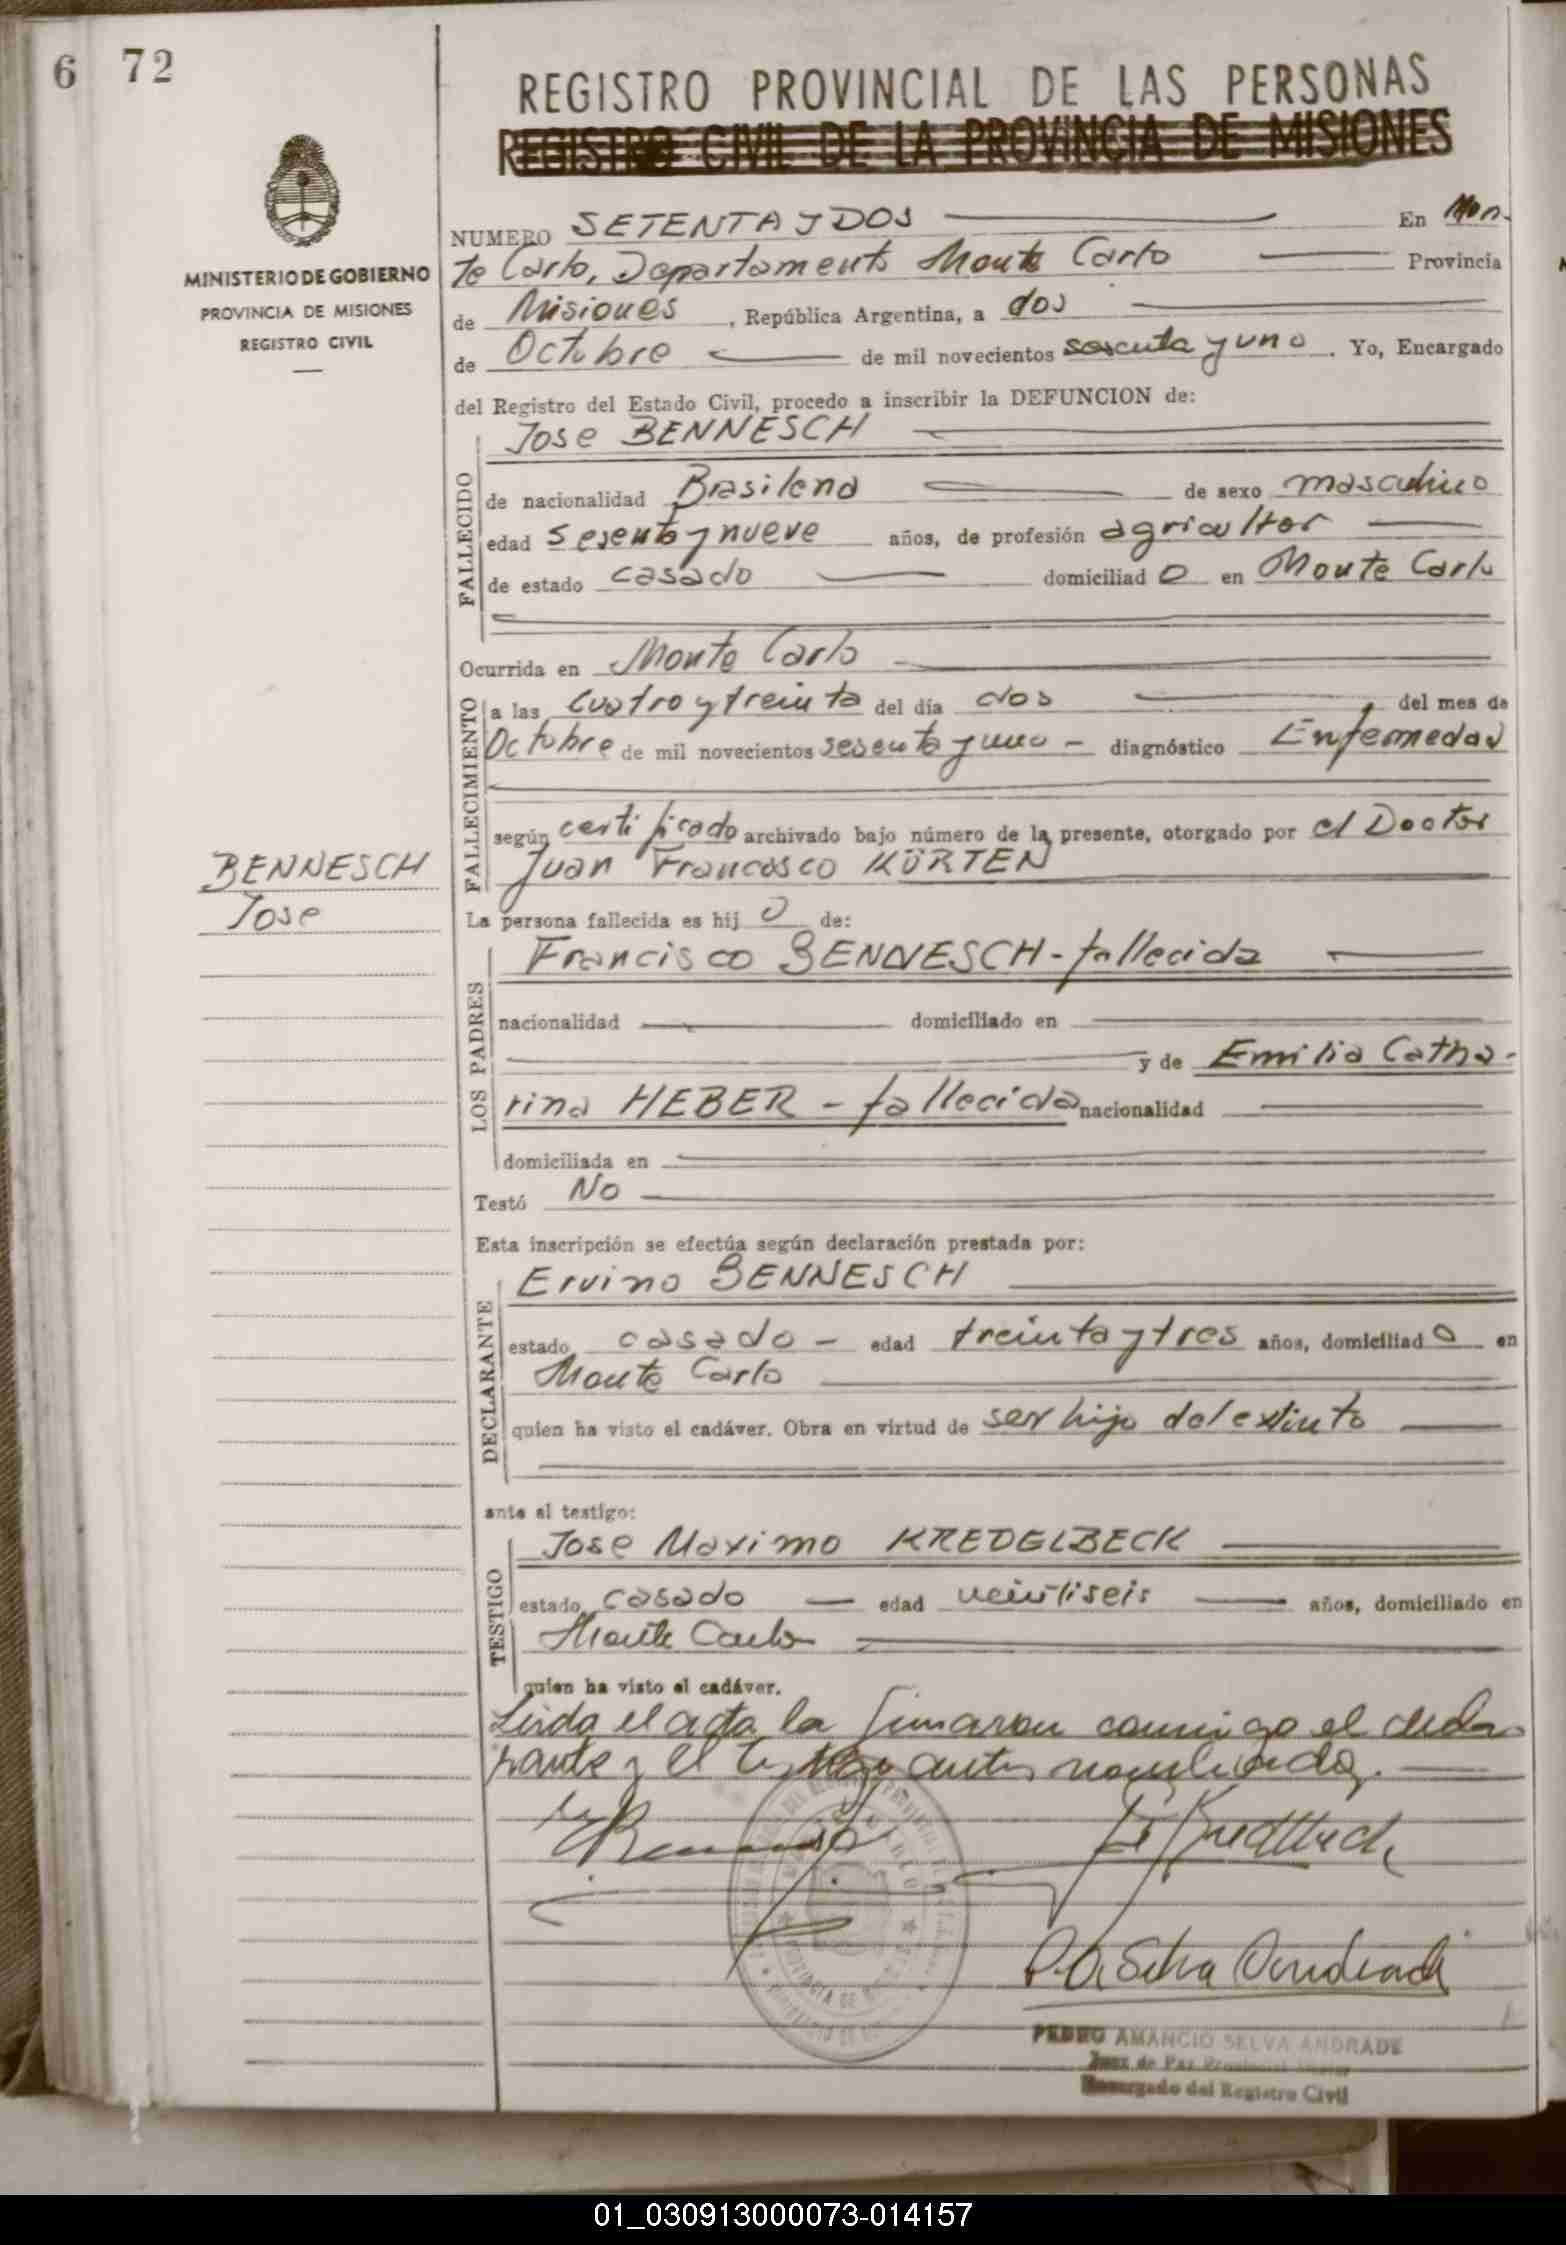 6 72
REGISTRO PROVINCIAL DE LAS PERSONAS
REGISTRO CIVIL DE LA PROVINCIA DE MISIONES
MINISTERIO DE GOBIERNO
PROVINCIA DE MISIONES
REGISTRO CIVIL
NUMERO SETENTA y DOS En Mon-
te Carlo, Departamento Monte Carlo Provincia
de Misiones, República Argentina, a dos
de Octubre de mil novecientos sesenta y uno. Yo, Encargado
del Registro del Estado Civil, procedo a inscribir la DEFUNCION de:
FALLECIDO
Jose BENNESCH
de nacionalidad Brasilena de sexo masculino
edad sesenta y nueve años, de profesión agricultor
de estado casado domiciliad o en Monte Carlo
Ocurrida en Monte Carlo
FALLECIMIENTO
a las cuatro y treinta del día dos del mes de
Octubre de mil novecientos sesenta y uno - diagnóstico Enfermedad
según certificado archivado bajo número de la presente, otorgado por el Doctor
Juan Francisco KÜRTEN
BENNESCH
Jose
La persona fallecida es hij o de:
LOS PADRES
Francisco BENNESCH - fallecida
nacionalidad domiciliado en
y de Emilia Catha-
rina HEBER - fallecida nacionalidad
domiciliada en
Testó No
Esta inscripción se efectúa según declaración prestada por:
DECLARANTE
Ervino BENNESCH
estado casado - edad treinta y tres años, domiciliad o en
Monte Carlo
quien ha visto el cadáver. Obra en virtud de ser hijo del extinto
ante el testigo:
TESTIGO
Jose Maximo KREDELBECK
estado casado edad veintiseis años, domiciliado en
Monte Carlo
quien ha visto el cadáver.
Leida el acta la firmaron conmigo el decla-
rante y el testigo antes nombrado.
P. A. Selva Andrade
PEDRO AMANCIO SELVA ANDRADE
Juez de Paz
Encargado del Registro Civil
01_030913000073-014157